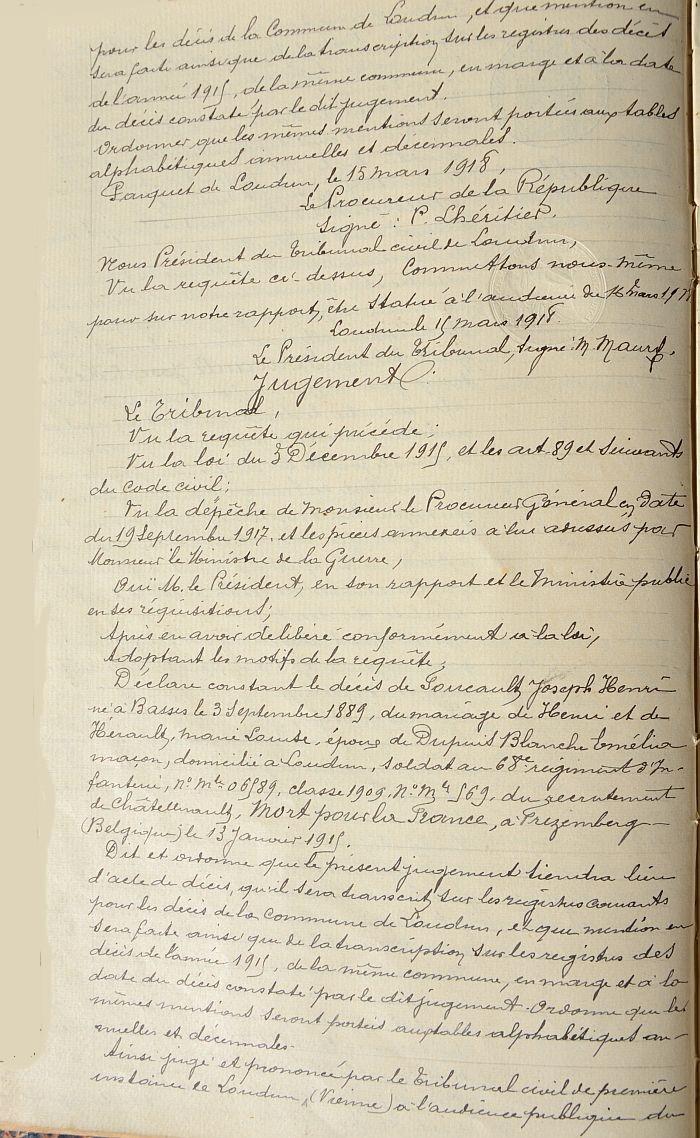 pour les décès de la Commune de Loudun, et que mention en
sera faite ainsi que de la transcription sur les registres des décès
de l'année 1915, de la même commune, en marge et à la date
du décès constaté par le dit jugement.
Ordonner que les mêmes mentions seront portées aux tables
alphabétiques annuelles et décennales.
Parquet de Loudun, le 15 mars 1918,
Le Procureur de la République
Signé : P. Lhéritier.
Nous Président du Tribunal civil de Loudun,
Vu la requête ci-dessus, Commettons nous-même
pour sur notre rapport, être statué à l'audience du 16 mars 1918
Loudun le 15 mars 1918
Le Président du Tribunal, Signé : M.
Jugement.
Le Tribunal,
Vu la requête qui précède ;
Vu la loi du 3 Décembre 1915, et les art. 89 et Suivants
du Code civil ;
Vu la dépêche de Monsieur le Procureur Général en date
du 19 Septembre 1917. et les pièces annexées à lui adressées par
Monsieur le Ministre de la Guerre,
Ouï M. le Président, en son rapport et le Ministère public
en ses réquisitions ;
Après en avoir délibéré conformément à la loi,
Adoptant les motifs de la requête ;
Déclare constant le décès de Foucault, Joseph Henri
né à Basses le 3 Septembre 1889, du mariage de Henri et de
Hérault, Marie Louise, époux de Dupuis Blanche Emélia
maçon, domicilié à Loudun, soldat au 68e régiment d'In-
fanterie, No Mle 06589, classe 1909. No Mle 569. du recrutement
de Châtellerault, Mort pour la France, à Prezemberg
(Belgique) le 13 Janvier 1915.
Dit et ordonne que le présent jugement tiendra lieu
d'acte de décès, qu'il sera transcrit sur les registres courants
pour les décès de la Commune de Loudun, et que mention en
sera faite ainsi que de la transcription sur les registres des
décès de l'année 1915, de la même commune, en marge et à la
date du décès constaté par le dit jugement. Ordonne que les
mêmes mentions seront portées aux tables alphabétiques an-
nuelles et décennales.
Ainsi jugé et prononcé par le Tribunal civil de première
instance de Loudun, (Vienne) à l'audience publique du